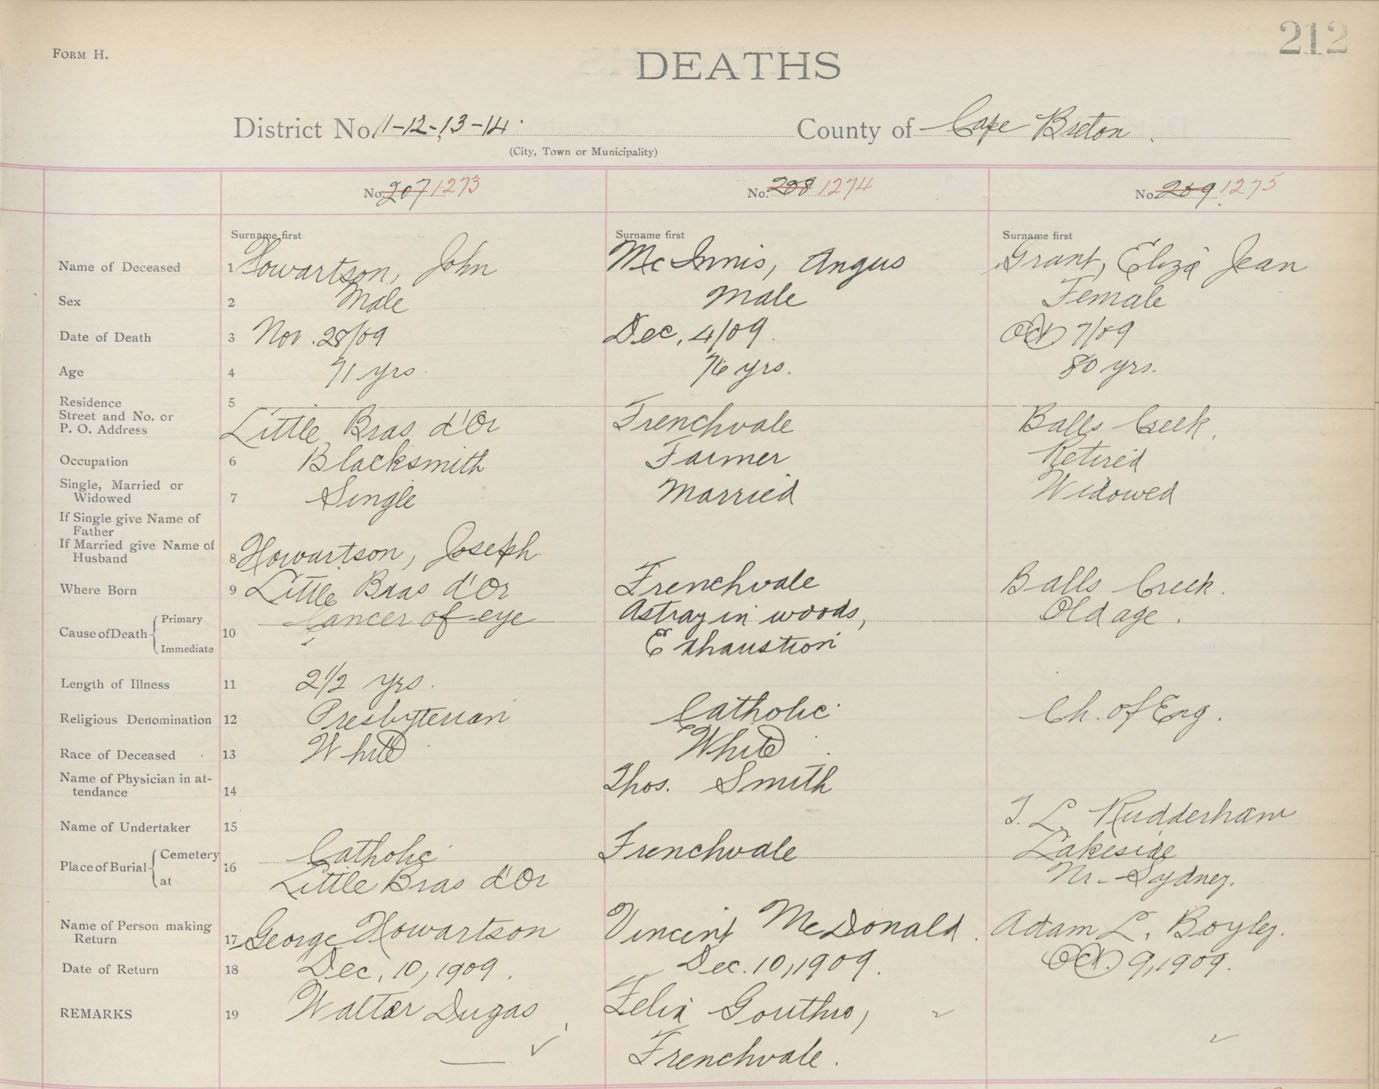 212
FORM H.
DEATHS
District No. 11-12-13-14. County of Cape Breton.
(City, Town or Municipality)
No. 207 1273 No. 208 1274 No. 209 1275
Surname first Surname first Surname first
Name of Deceased 1 Howartson, John McInnis, Angus Grant, Eliza Jean
Sex 2 Male Male Female
Date of Death 3 Nov. 28/09 Dec. 4/09. Oct 7/09
Age 4 71 yrs. 76 yrs. 80 yrs.
Residence
Street and No. or
P. O. Address 5 Little Bras d'Or Frenchvale Balls Creek.
Occupation 6 Blacksmith Farmer Retired
Single, Married or
Widowed 7 Single Married Widowed
If Single give Name of
Father
If Married give Name of
Husband 8 Howartson, Joseph
Where Born 9 Little Bras d'Or Frenchvale Balls Creek.
Cause of Death Primary Immediate 10 Cancer of eye Astray in woods, Old age.
Exhaustion
Length of Illness 11 2 1/2 yrs.
Religious Denomination 12 Presbyterian Catholic Ch. of Eng.
Race of Deceased 13 White White
Name of Physician in at-
tendance 14 Thos. Smith
Name of Undertaker 15 T. L. Rudderham
Place of Burial Cemetery 16 Catholic Frenchvale Lakeside
at Little Bras d'Or Nr. Sydney.
Name of Person making
Return 17 George Howartson Vincent McDonald. Adam L. Boyley.
Date of Return 18 Dec. 10, 1909. Dec. 10, 1909. Oct. 9, 1909.
REMARKS 19 Walter Dugas Felix Gouthro,
Frenchvale.